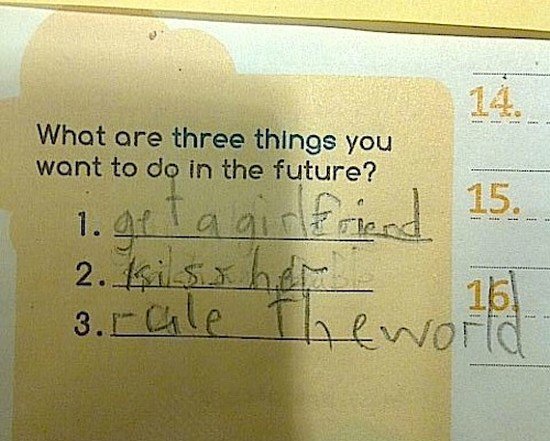 What are three things you
want to do in the future?
1. get a girlfriend
2. her
3. rule The world
14.
15.
16.